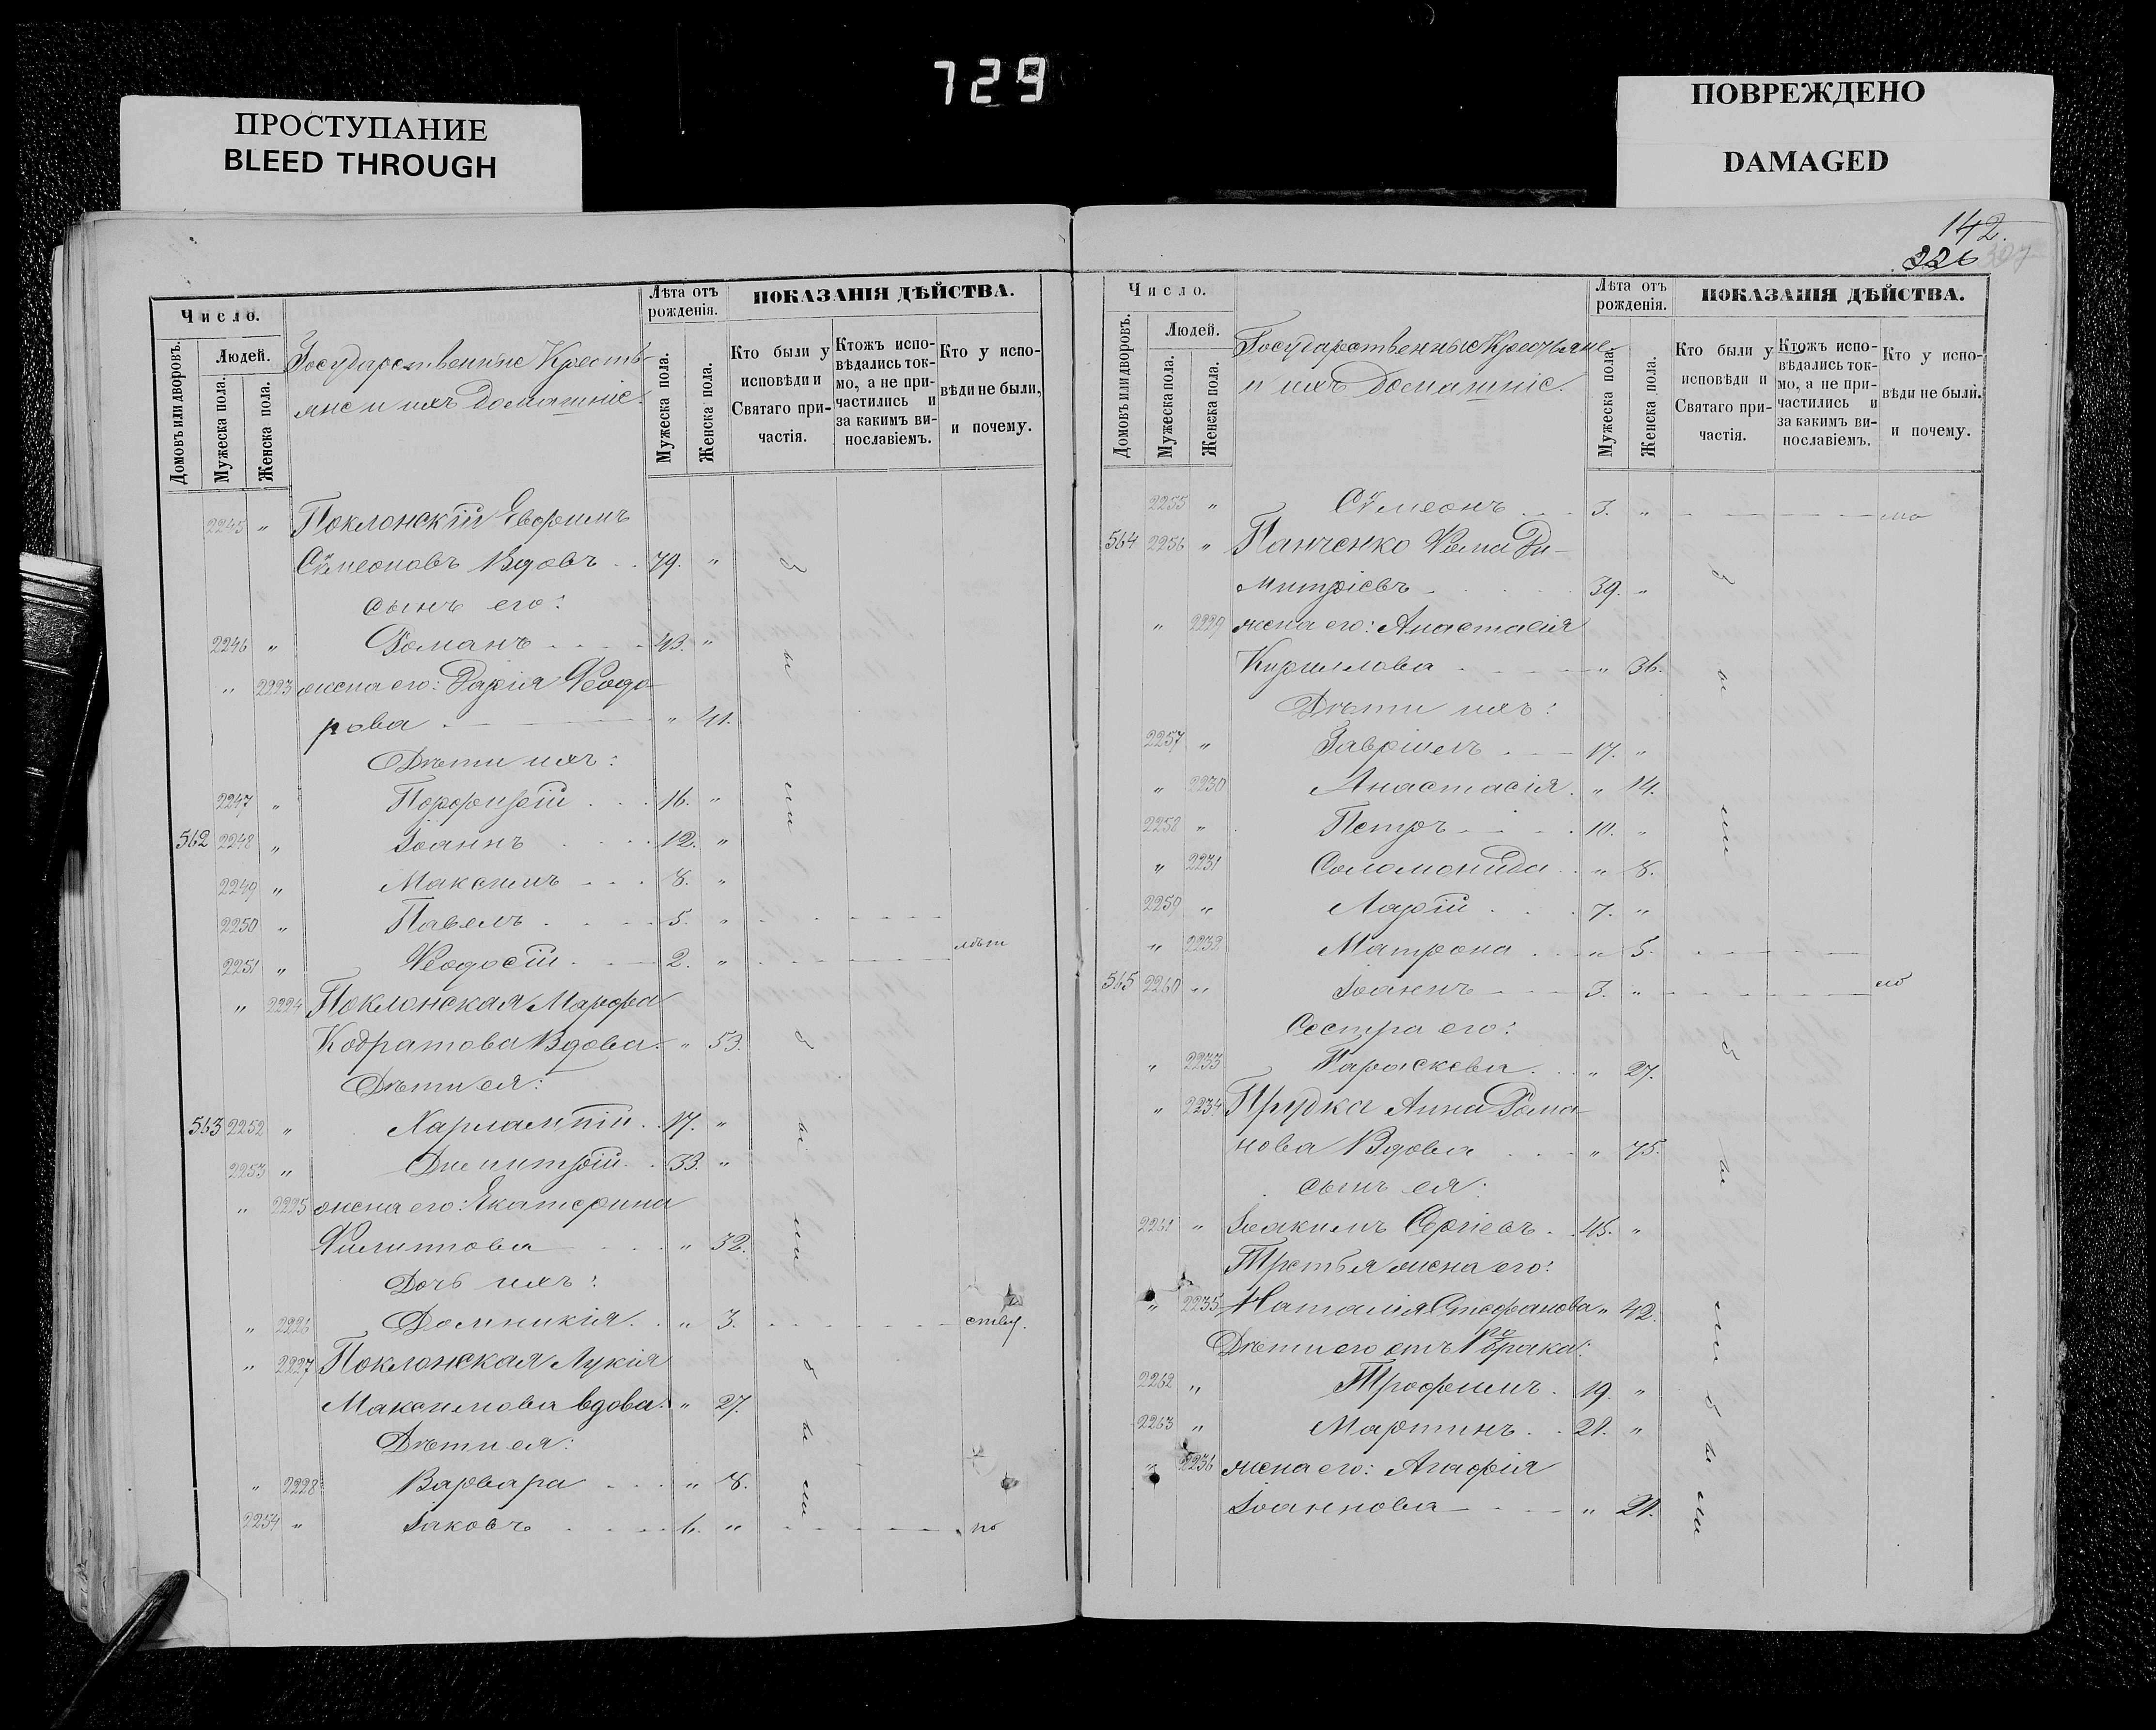 729
ПРОСТУПАНИЕ
BLEED THROUGH
ПОВРЕЖДЕНО
DAMAGED
Число.
Домовъ или дворовъ.
Людей.
Мужеска пола.
Женска пола.
Государственные Кресть-
яне и ихъ домашніе.
Лѣта отъ рожденія.
Мужеска пола.
Женска пола.
ПОКАЗАНІЯ ДѢЙСТВА.
Кто были у исповѣди и Святаго при-частія.
Ктожъ испо-вѣдались ток-мо, а не при-частились и за какимъ ви-нославіемъ.
Кто у испо-вѣди не были, и почему.
2245 " Поклонскій Евфимъ
Сѵмеоновъ Вдовъ 79. "
сынъ его:
2246 " Романъ 43. "
" 2223 жена его: Дарія Ѳеодо-
рова " 41.
Дѣти ихъ:
2247 " Порфирій 16. "
562 2248 " Іоаннъ 12. "
2249 " Максимъ 8. "
2250 " Павелъ 5. "
2251 " Ѳеодосій 2. " лѣт
" 2224 Поклонская Марфа
Кодратова Вдова " 53.
Дѣти ея:
563 2252 " Харлампій 17. "
2253 " Димитрій 33. "
" 2225 жена его: Екатерина
Филиппова " 32.
Дочь ихъ:
" 2226 Домникія " 3. ству.
" 2227 Поклонская Лукія
Максимова вдова " 27.
Дѣти ея:
" 2228 Варвара " 8.
2254 " Іаковъ 6. " по
были
были
были
142.
326
Число.
Домовъ или дворовъ.
Людей.
Мужеска пола.
Женска пола.
Государственные Крестьяне
и ихъ домашніе.
Лѣта отъ рожденія.
Мужеска пола.
Женска пола.
ПОКАЗАНІЯ ДѢЙСТВА.
Кто были у исповѣди и Святаго при-частія.
Ктожъ испо-вѣдались ток-мо, а не при-частились и за какимъ ви-нославіемъ.
Кто у испо-вѣди не были, и почему.
2255 " Сѵмеонъ 3. " ма
564 2256 " Панченко Ѳома Ди-
митріевъ 39. "
" 2229 жена его: Анастасія
Кириллова " 36.
Дѣти ихъ:
2257 " Гавріилъ 17. "
" 2230 Анастасія " 14.
2258 " Петръ 10. "
" 2231 Соломонида " 8.
2259 " Ларій 7. "
" 2232 Матрона " 5.
565 2260 " Іоаннъ 3. " ло
Сестра его:
" 2233 Параскева " 27.
" 2234 Прудка Анна Рома-
нова Вдова " 75.
сынъ ея:
2261 " Іоакимъ Сергіевъ 45. "
Третья жена его:
" 2235 Наталія Стефанова " 42.
Дѣти его отъ 1го брака:
2262 " Трофимъ 19. "
2263 " Мартинъ 21. "
" 2236 жена его: Агафія
Іоаннова " 21.
были
были
были